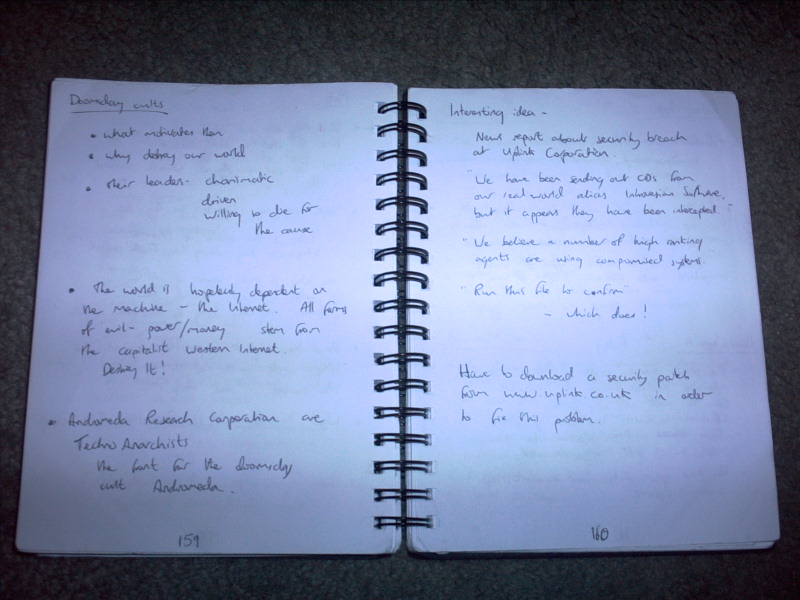 Doomsday cults
• what motivates them
• why destroy our world
• their leaders - charismatic
driven
willing to die for
the cause
• The world is hopelessly dependent on
the machine - the Internet. All forms
of evil - power/money stem from
the capitalist Western Internet.
Destroy It!
• Andromeda Research Corporation are
Techno Anarchists
the front for the doomsday
cult Andromeda.
159
Interesting idea -
News report about security breach
at Uplink Corporation.
"We have been sending out CDs from
our real-world offices Introversion Software,
but it appears they have been intercepted."
"We believe a number of high ranking
agents are using compromised systems.
"Run this file to confirm"
- which does!
Have to download a security patch
from www.uplink.co.uk in order
to fix this problem.
160